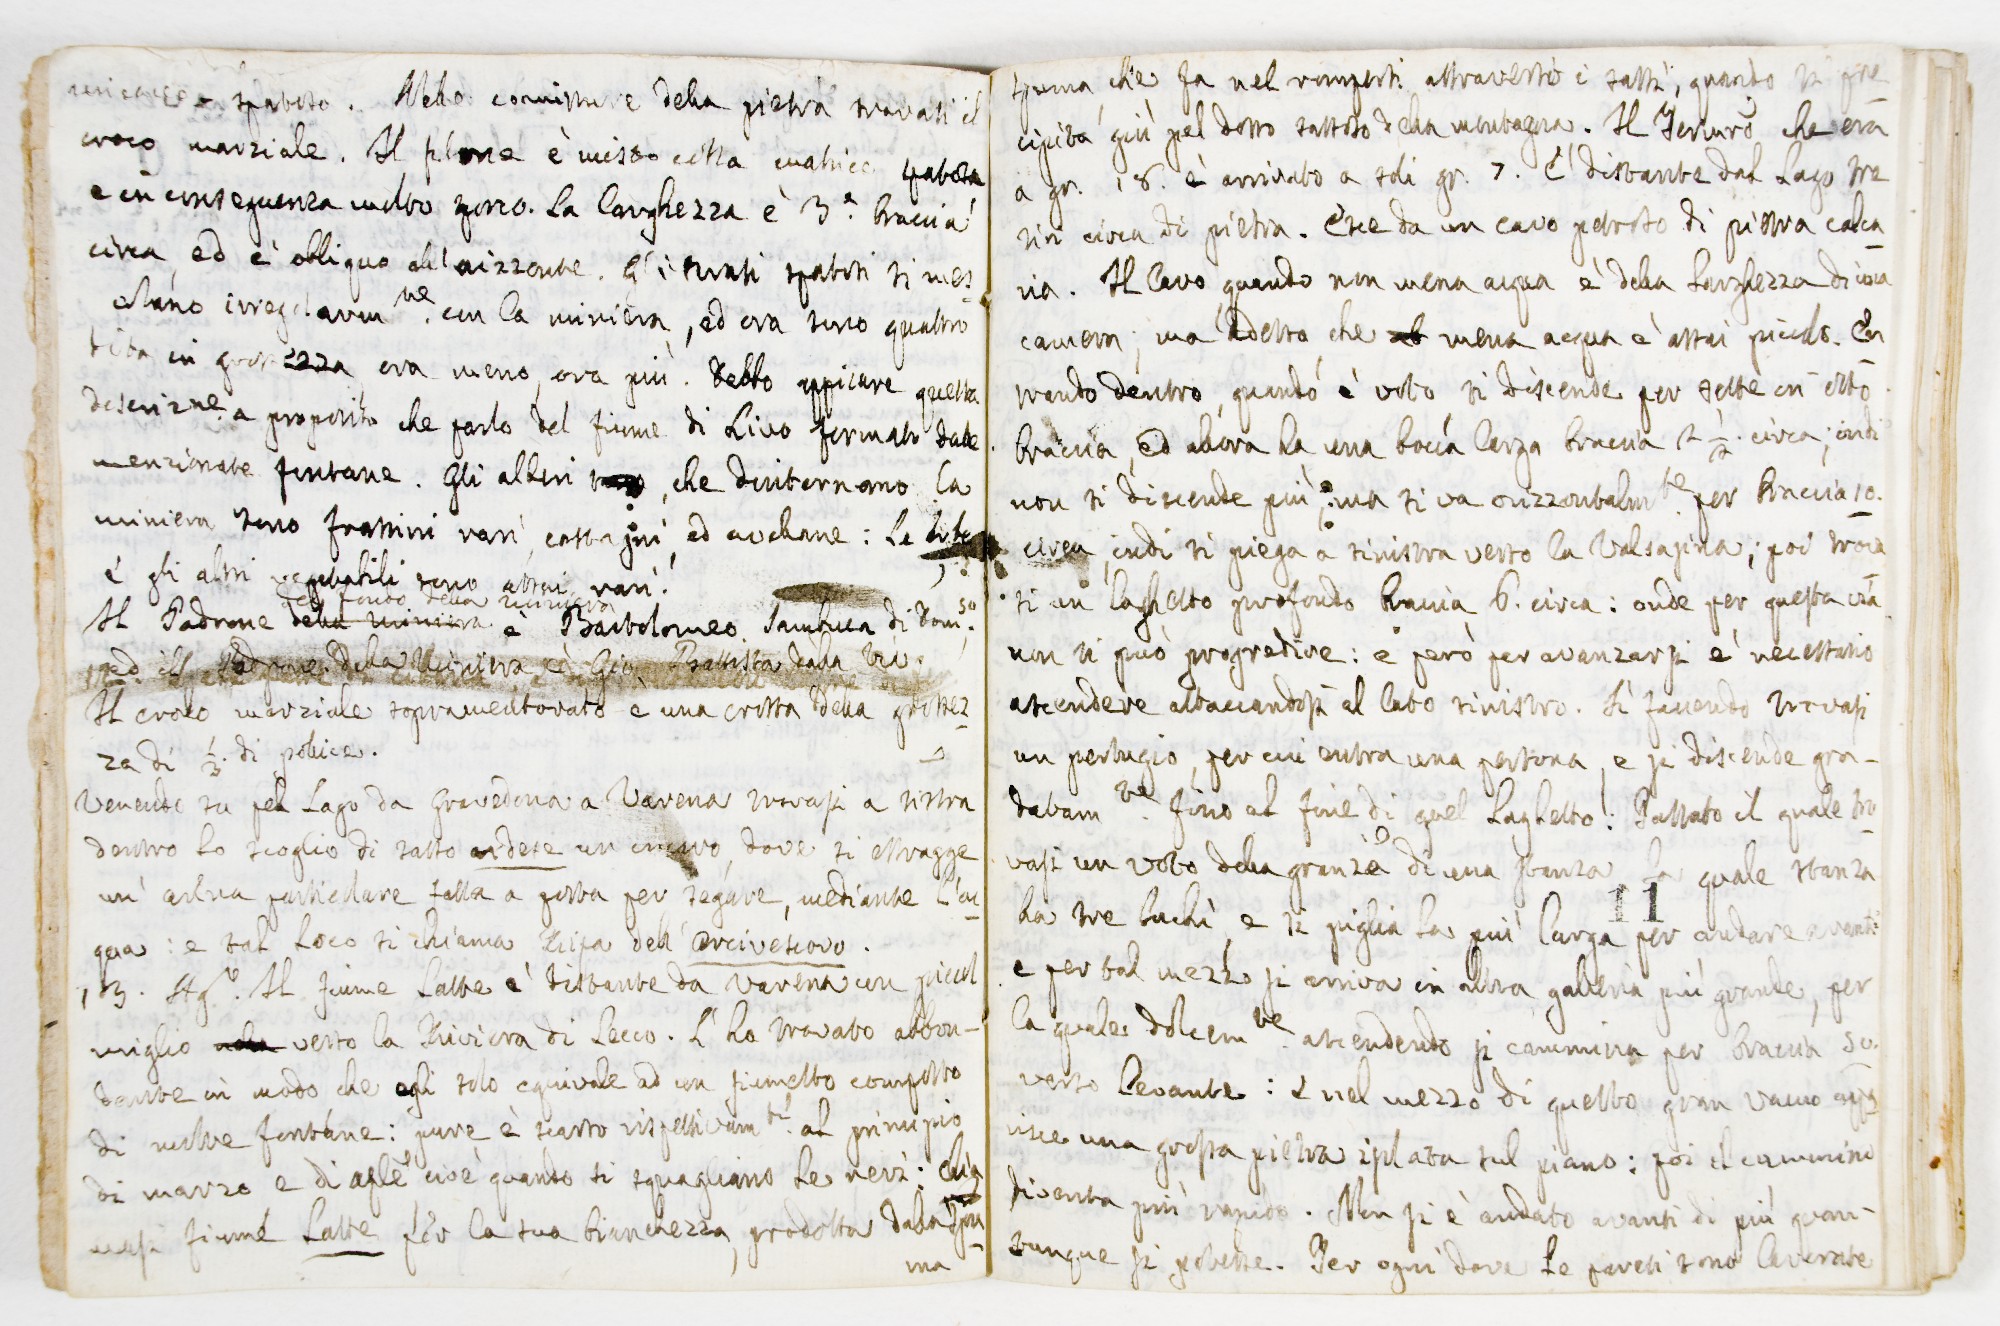 spatoso. Nelle comissure della pietra trovasi il
croco marziale. Il filone è misto colla matrice spatosa
e in conseguenza molto sporco. La larghezza è 3. braccia
circa, ed è obliquo all'orizzonte. Gli strati spatosi si mes-
colano irregolarm.te con la miniera, ed ora sono quattro
dita in grossezza ora meno, ora più. Debbo appiccare questa
descriz.ne a proposito che parlo del fiume di Livo formato dalle
menzionate fontane. Gli alberi, che dintornano la
miniera sono frassini rari, castagni, ed avellane: Le erbe
e gli altri vegetabili sono assai rari.
del fondo della miniera
Il Padrone della miniera è Bartolomeo Sambuca di Dom.co,
ed il Padrone della Miniera è Gio. Battista dalla
Il croco marziale sopramentovato è una crosta della grossez-
za di 1/3. di pollice.
Venendo su pel Lago da Gravedona a Varena trovasi a sistra
dentro lo scoglio di sasso un incavo, dove si estragge
un' arena particolare fatta a posta per segare, mediante l'ac-
qua: e tal loco si chiama Ripa dell' Arcivescovo.
13. Ag.o. Il fiume Latte è distante da Varena un piccol
miglio verso la Riviera di Lecco. L'ho trovato abbon-
dante in modo che egli solo equivale ad un fiumetto composto
di molte fontane: pure è scarso rispettivam.te al principio
di marzo e di aple cioè quando si squagliano le nevi: chia
masi fiume Latte per la sua bianchezza, prodotta dalla spu-
ma
spuma che fa nel rompersi attraverso i sassi, quando si pre
cipita giù pel dosso sassoso della montagna. Il Termro che era
a gr. 18. è arrivato a soli gr. 7. È distante dal Lago tre
tiri circa di pietra. Esce da un cavo petroso di pietra calca-
ria. Il Cavo quando non mena acqua è della larghezza di una
camera; ma adesso che mena acqua è assai piccolo. En
trando dentro quando è voto si discende per sette in otto
braccia, ed allora ha una bocca larga braccia 2 1/2. circa; indi
non si discende più; ma si va orizzontalm.te per braccia 10.
circa, indi si piega a sinistra verso la Valsasina; poi trova
si un laghetto profondo braccia 6. circa: onde per questa via
non si può progredire: e però per avanzarsi è necessario
ascendere attaccandosi al lato sinistro. Sì facendo trovasi
un pertugio, per cui entra una persona, e si discende gra-
datam.te fino al fine di quel Laghetto: Passato il quale tro-
vasi un voto della granza di una stanza la quale stanza
ha tre buchi e si piglia la più larga per andare avanti
11
e per tal mezzo si arriva in altra galleria più grande, per
la quale dolcem.te ascendendo si cammina per braccia 50.
verso Levante: e nel mezzo di questo gran vacuo
una grossa pietra isolata sul piano: poi il cammino
diventa più rapido. Non si è andato avanti di più quan-
tunque si potesse. Per ogni dove le pareti sono lacerate